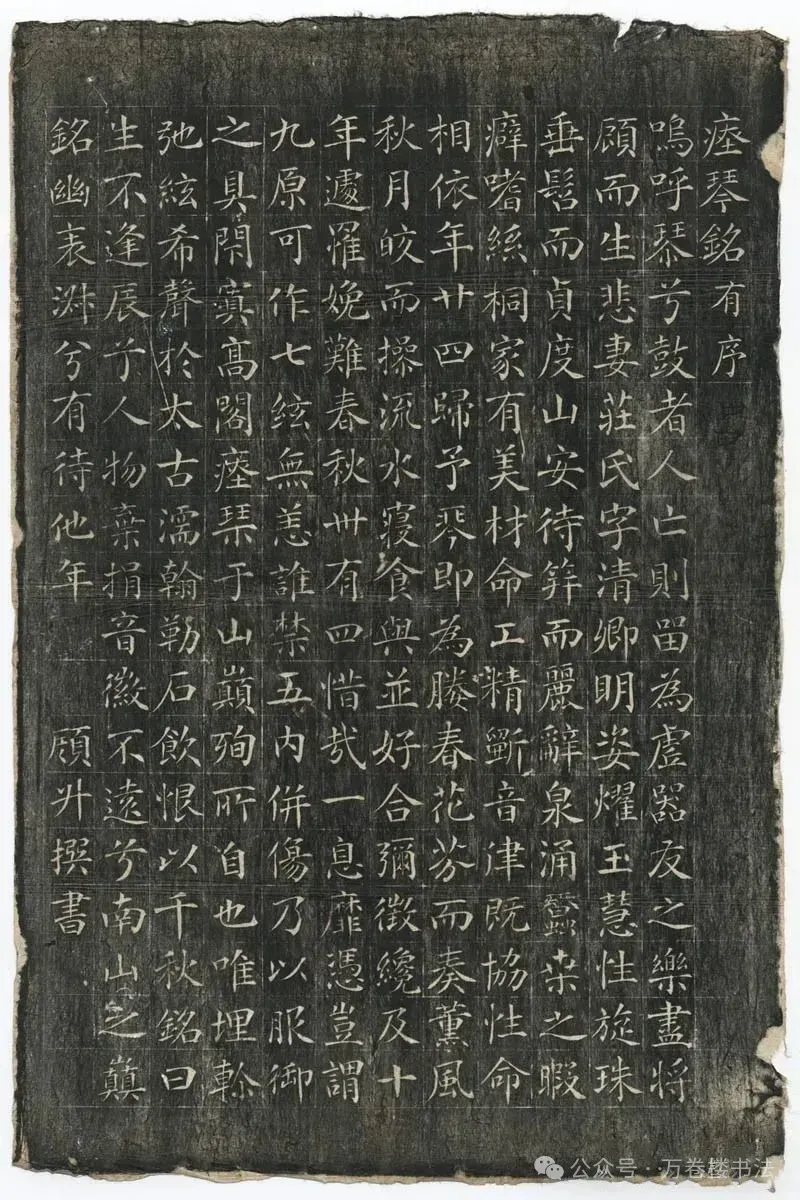 瘞琴銘有序
嗚呼琴兮鼓者人亡則畱為虛器友之樂盡將
顧而生悲妻莊氏字清卿明姿燿玉慧性旋珠
垂髫而貞度山安待筓而麗辭泉涌蠶桒之暇
癖嗜絲桐家有美材命工精斵音律既協性命
相依年廿四歸予琴即為媵春花芬而奏薰風
秋月皎而操流水寢食與並好合彌徵纔及十
年遽罹娩難春秋卅有四惜哉一息靡憑豈謂
九原可作七絃無恙誰禁五內併傷乃以服御
之具閑寘高閣瘞琹于山巔殉所自也唯埋軫
弛絃希聲於太古濡翰勒石飲恨以千秋銘曰
生不逢辰兮人物棄捐音徽不遠兮南山之巔
銘幽表淑兮有待他年 頋升撰書
公众号 · 万卷楼书法